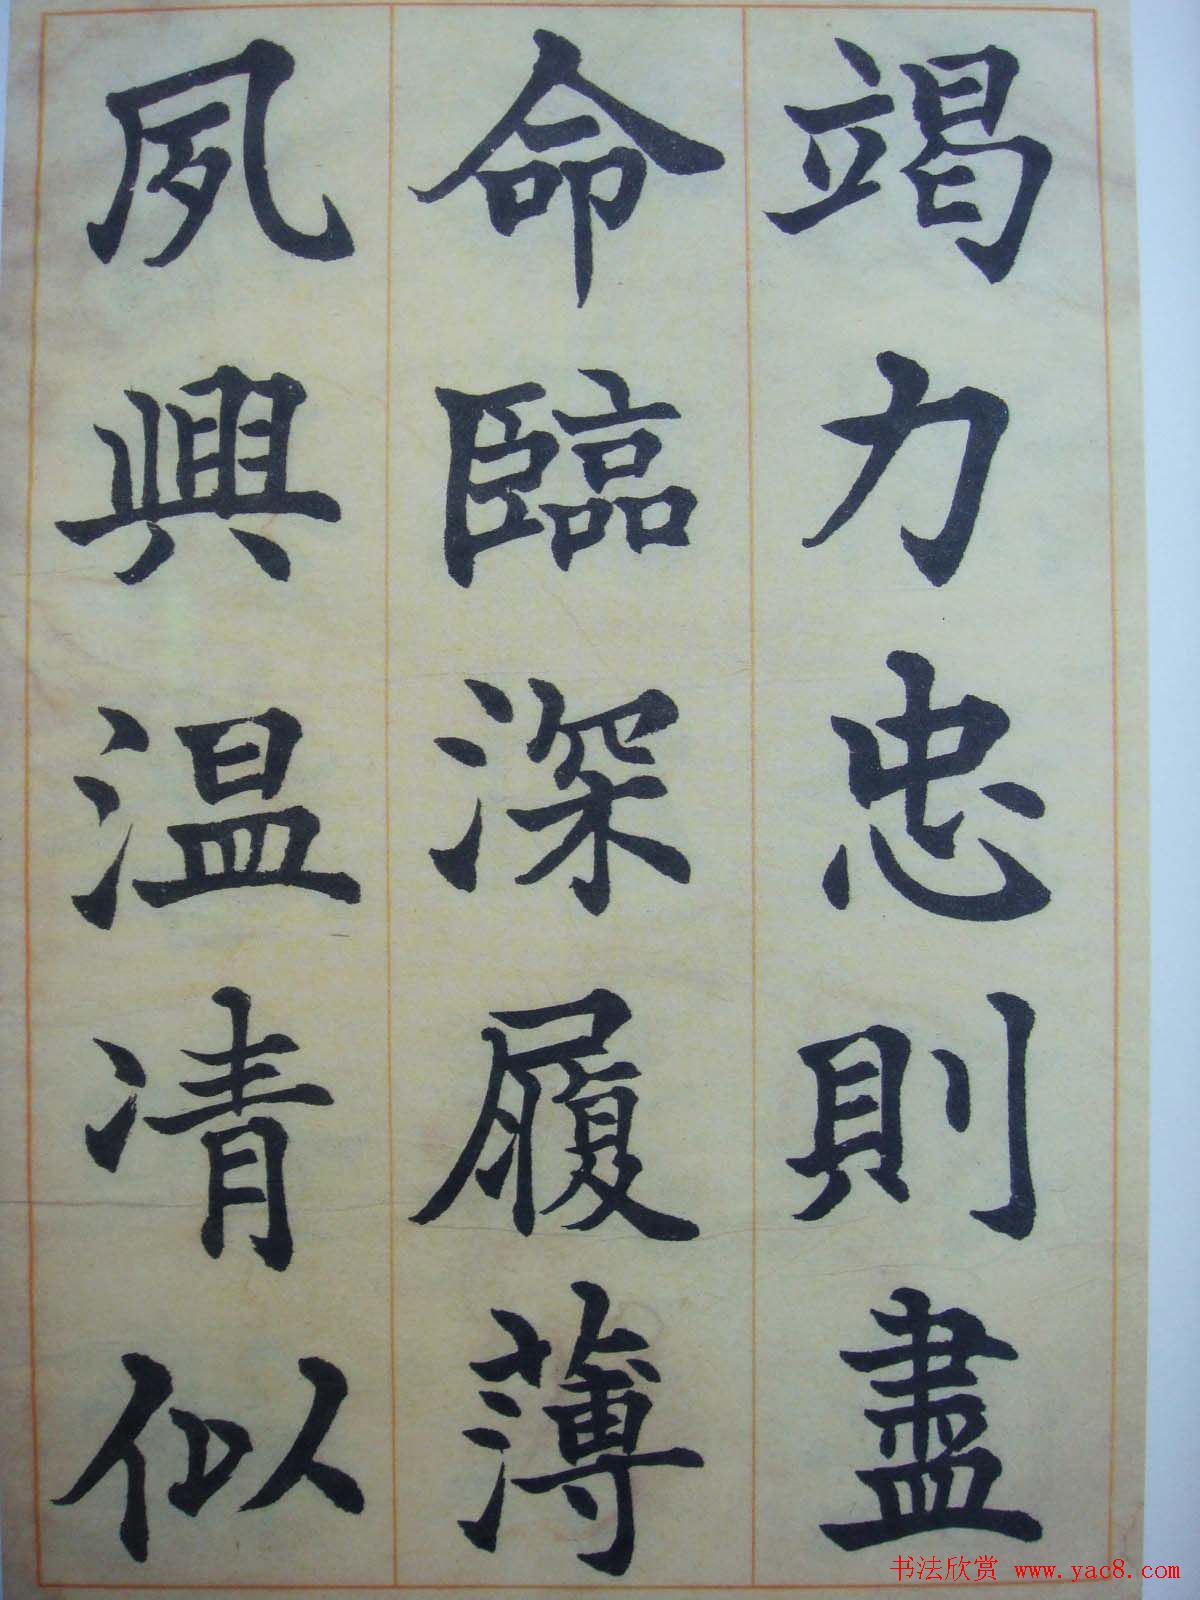 竭力忠則盡
命臨深履薄
夙興温凊似
书法欣赏 www.yac8.com